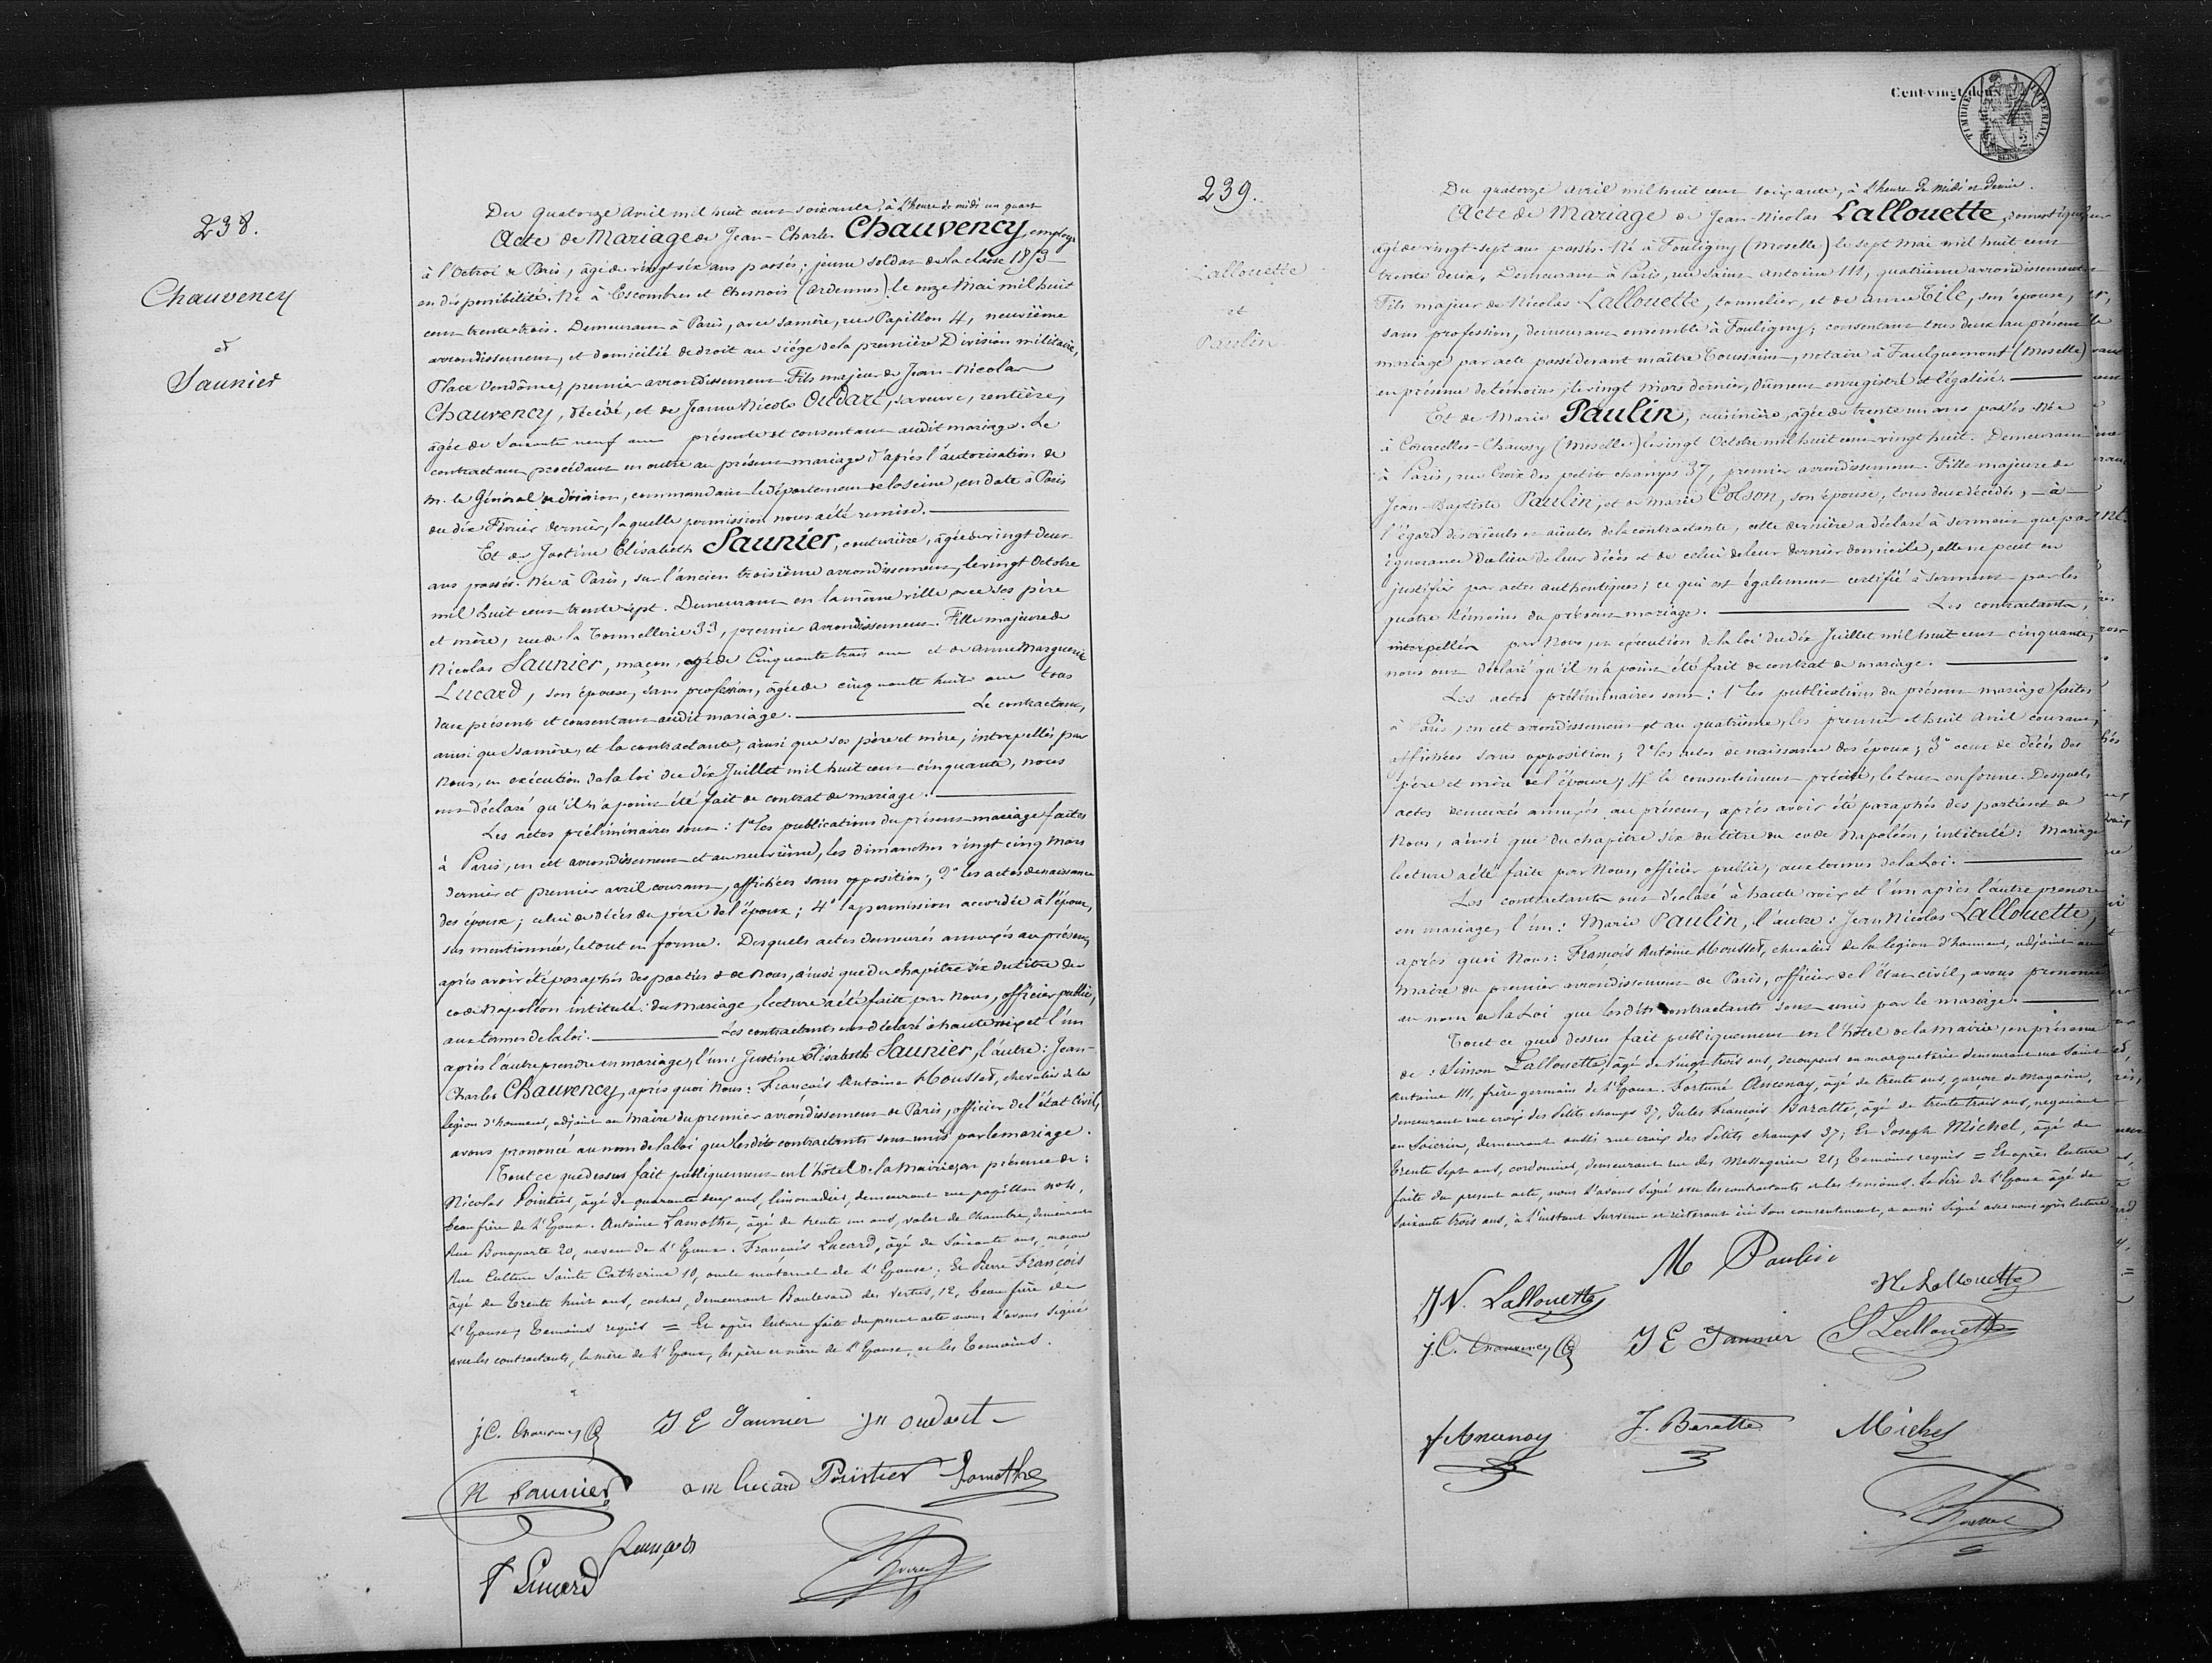 238.
Chauvency
et
Saunier
Du quatorze Avril mil huit cent soixante, à l'heure de midi un quart
Acte de Mariage de Jean-Charles Chauvency, employé
à l'Octroi de Paris, âgé de vingt six ans passés; jeune soldat de la classe 1853
en disponibilité. Né à Escombres et Chesnois (Ardennes), le onze Mai mil huit
cent trente trois. Demeurant à Paris, avec sa mère, rue Papillon 4, neuvième
arrondissement, et domicilié de droit au siége de la première Division militaire,
Place Vendôme, premier arrondissement. Fils majeur de Jean-Nicolas
Chauvency, décédé, et de Jeanne Nicole Oudart, sa veuve, rentière,
âgée de Soixante neuf ans présente et consentant audit mariage. Le
contractant procédant en outre au présent mariage d'après l'autorisation de
M. le Général de division, commandant le département de la Seine, en date à Paris
du dix Février dernier, laquelle permission nous a été remise.
Et de Justine Elisabeth Saunier, couturière, âgée de vingt deux
ans passés. Née à Paris, sur l'ancien troisième arrondissement, le vingt Octobre
mil huit cent trente sept. Demeurant en la même ville avec ses père
et mère, rue de la Tonnellerie 33, premier arrondissement. Fille majeure de
Nicolas Saunier, maçon, agé de Cinquante trois ans et de Anne Marguerite
Lucard, son épouse, sans profession, âgée de cinquante huit ans tous
deux présents et consentant audit mariage. Le contractant,
ainsi que sa mère, et la contractante, ainsi que ses père et mère, interpellés par
Nous, en exécution de la loi du dix Juillet mil huit cent cinquante, nous
ont déclaré qu'il n'a point été fait de contrat de mariage.
Les actes préliminaires sont: 1° les publications du présent mariage faites
à Paris, en cet arrondissement et au neuvième, les dimanches vingt cinq Mars
dernier et premier avril courant, affichées sans opposition; 2° les actes de naissance
des époux; celui de décès du père de l'époux; 4° la permission accordée à l'époux,
sus mentionnée, le tout en forme. Desquels actes demeurés annexés au présent,
après avoir été paraphés des parties et de Nous, ainsi que du chapitre six du titre du
code Napoléon intitulé: du Mariage, lecture a été faite par Nous, officier public,
aux termes de la loi. Les contractants ont déclaré à haute voix et l'un
après l'autre prendre en mariage, l'un: Justine Elisabeth Saunier, l'autre: Jean-
Charles Chauvency, après quoi Nous: François Antoine Housset, chevalier de la
légion d'honneur, adjoint au Maire du premier arrondissement de Paris, officier de l'état civil,
avons prononcé au nom de la loi que lesdits contractants sont unis par le mariage.
Tout ce que dessus fait publiquement en l'hôtel de la Mairie, en présence de:
Nicolas Pointier, âgé de quarante deux ans, limonadier, demeurant rue papillon
beau frère de l'Epoux. Antoine Lamothe, âgé de trente un ans, valet de Chambre, demeurant
Rue Bonaparte 20, neveu de l'Epoux. François Lucard, âgé de Soixante ans, maçon
Rue Culture Sainte Catherine 10, oncle maternel de l'Epouse; Et Pierre François
âgé de trente huit ans, cocher, demeurant Boulevard des Vertus, 12, beau frère de
L'Epouse, temoins requis = Et après lecture faite du present acte nous l'avons signé
avec les contractants, la mère de l'Epoux, les père et mère de l'Epouse, et les Temoins.
J.C. Chauvency J E Saunier J N Oudart
N Saunier a m lucard Pointier Lamothe
François
F Lucard
Cent vingt deux
TIMBRE IMPÉRIAL
SEINE
239.
Lallouette
et
Paulin
Du quatorze Avril mil huit cent soixante, à l'heure de midi et demie.
Acte de Mariage de Jean-Nicolas Lallouette, domestique,
âgé de vingt-sept ans passés. Né à Fouligny (Moselle) le sept Mai mil huit cent
trente deux. Demeurant à Paris, rue Saint Antoine 111, quatrième arrondissement.
Fils majeur de Nicolas Lallouette, tonnelier, et de Anne Tile, son épouse,
sans profession, demeurant ensemble à Fouligny; consentant tous deux au présent
mariage par acte passé devant maître Toussaint, notaire à Faulquemont (Moselle)
en présence de témoins, le vingt Mars dernier, dûment enregistré et légalisé.
Et de Marie Paulin, cuisinière, âgée de trente un ans passés. Née
à Courcelles-Chaussy (Moselle) le vingt Octobre mil huit cent vingt huit. Demeurant
à Paris, rue Croix des petits champs 37, premier arrondissement. Fille majeure de
Jean-Baptiste Paulin, et de Marie Colson, son épouse, tous deux décédés, à
l'égard des aïeuls et aïeules de la contractante, cette dernière a déclaré à serment que par
ignorance du lieu de leur décès et de celui de leur dernier domicile, elle ne peut en
justifier par actes authentiques; ce qui est également certifié à serment par les
quatre témoins du présent mariage. Les contractants,
interpellés par Nous, en exécution de la loi du dix Juillet mil huit cent cinquante,
nous ont déclaré qu'il n'a point été fait de contrat de mariage.
Les actes préliminaires sont: 1° les publications du présent mariage faites
à Paris, en cet arrondissement et au quatrième, les premier et huit Avril courant,
affichées sans opposition; 2° les actes de naissance des époux; 3° ceux de décès des
père et mère de l'épouse; 4° le consentement précité, le tout en forme. Desquels
actes demeurés annexés au présent, après avoir été paraphés des parties et de
Nous, ainsi que du chapitre six du titre du code Napoléon, intitulé: Mariage
lecture a été faite par Nous, officier public, aux termes de la Loi.
Les contractants ont déclaré à haute voix et l'un après l'autre prendre
en mariage, l'un: Marie Paulin, l'autre: Jean Nicolas Lallouette,
après quoi Nous: François Antoine Housset, chevalier de la légion d'honneur, adjoint au
Maire du premier arrondissement de Paris, officier de l'état civil, avons prononcé
au nom de la Loi que lesdits contractants sont unis par le mariage.
Tout ce que dessus fait publiquement en l'hôtel de la mairie, en présence
de: Simon Lallouette, âgé de vingt trois ans, découpeur en marqueterie demeurant rue Saint
Antoine 111, frère germain de l'Epoux. Fortuné Ancenay, âgé de trente ans, garçon de Magasin,
demeurant rue croix des Petits champs 37, Jules François Baratte, âgé de trente trois ans, négociant
en Soieries, demeurant aussi rue croix des Petits champs 37; Et Joseph Michel, âgé de
trente sept ans, cordonnier, demeurant rue des Messageries 21; temoins requis = Et après lecture
faite du present acte, nous l'avons signé avec les contractants et les temoins. Le Père de l'Epoux âgé de
soixante trois ans, à l'instant survenu et réiterant ici son consentement, a aussi signé avec nous après lecture
M Paulin
J N. Lallouette N. Lallouette
J.C. Chauvency J E Saunier S Lallouette
f Ancenay J. Baratte Michel